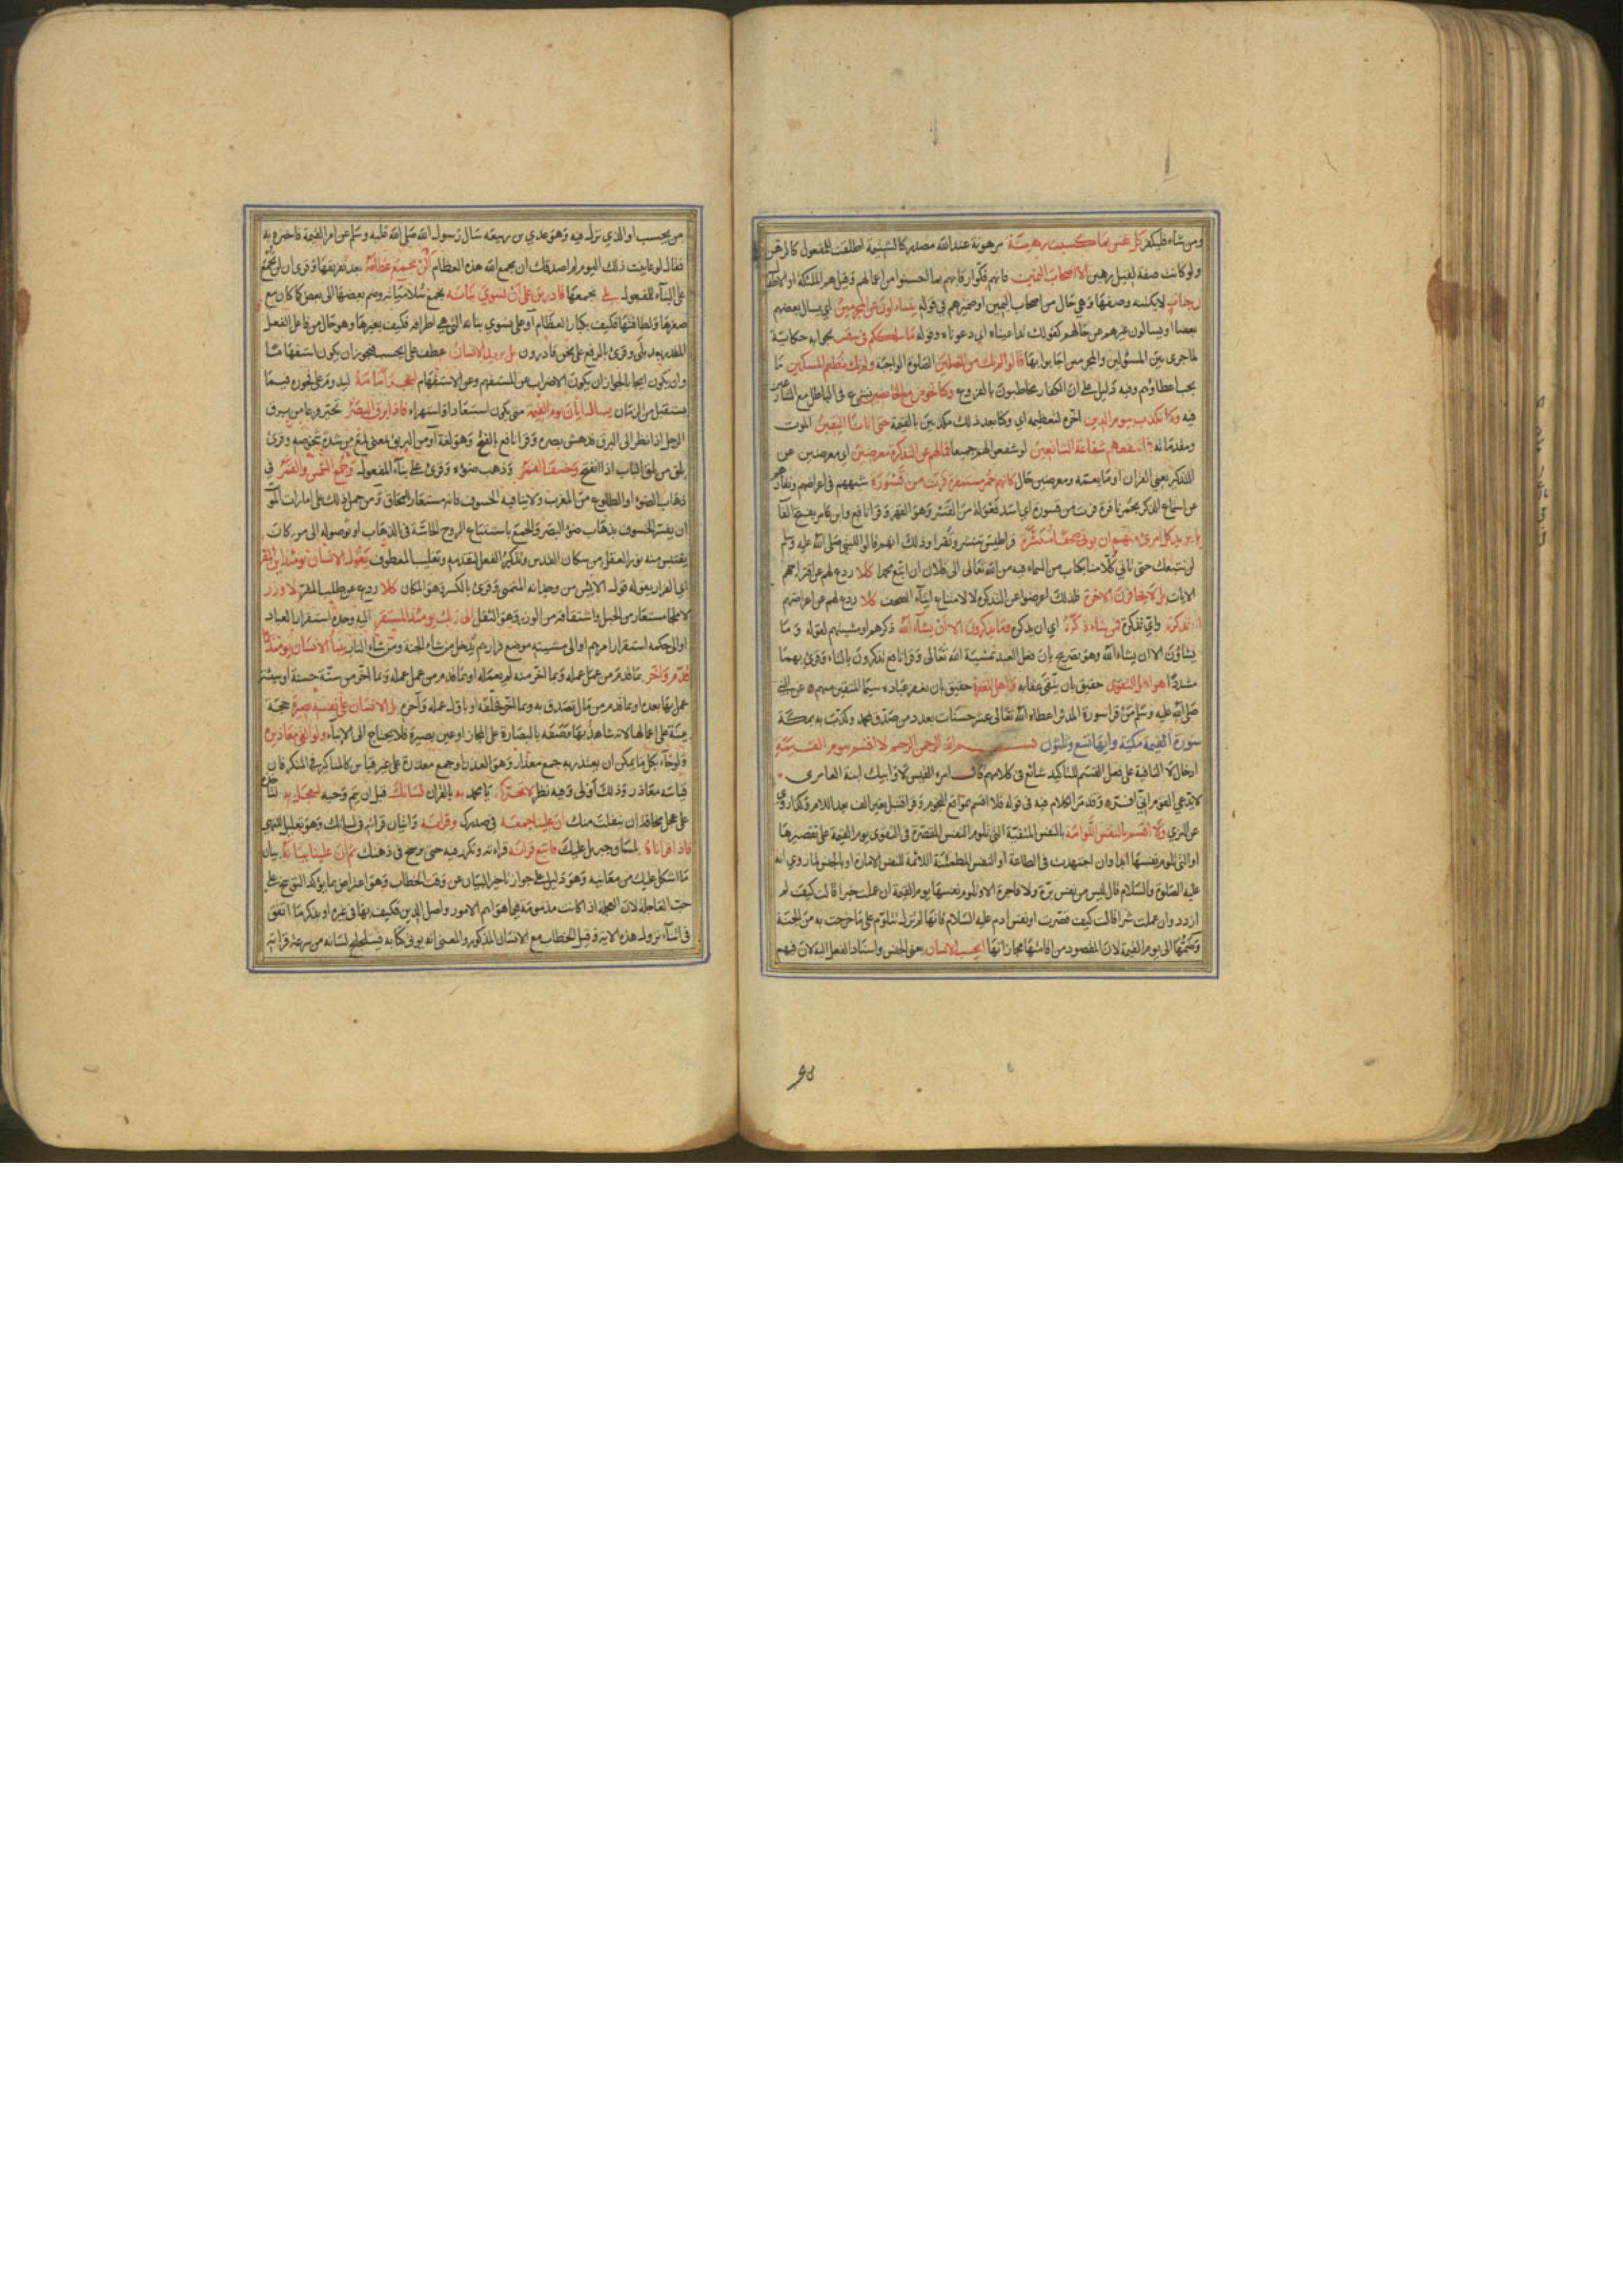 ومن شاء فليكفر كل نفس بما كسبت رهينة مرهونة عند الله مصدر كالشتيمة اطلقت للمفعول كالرهن
ولو كانت صفة لقيل رهين الا اصحاب اليمين فانهم فكوا رقابهم بما احسنوا من اعمالهم وقيل هم الملئكة او الاطفال
في جنات لا يكتنه وصفها وهي حال من اصحاب اليمين او ضميرهم في قوله يتساءلون عن المجرمين اي يسال بعضهم
بعضا او يسالون غيرهم عن حالهم كقولك تداعيناه اي دعوناه وقوله ما سلككم في سقر بجوابه حكاية
لما جرى بين المسئولين والمجرمين اجابوا بها قالوا لم نك من المصلين الصلوة الواجبة ولم نك نطعم المسكين ما
يجب اعطاؤهم وفيه دليل على ان الكفار مخاطبون بالفروع وكنا نخوض مع الخائضين نشرع في الباطل مع الشارعين
فيه وكنا نكذب بيوم الدين اخره لتعظيمه اي وكنا بعد ذلك مكذبين بالقيمة حتى اتانا اليقين الموت
ومقدماته فما تنفعهم شفاعة الشافعين لو شفعوا لهم جميعا فما لهم عن التذكرة معرضين اي معرضين عن
التذكير يعني القران او ما يعمه ومعرضين حال كانهم حمر مستنفرة فرت من قسورة شبههم في اعراضهم ونفارهم
عن استماع الذكر بحمر نافرة فرت من قسورة اي اسد فعولة من القسر وهو القهر وقرا نافع وابن عامر بفتح الفا
بل يريد كل امرئ منهم ان يؤتى صحفا منشرة قراطيس تنشر وتقرا وذلك انهم قالوا للنبي صلى الله عليه وسلم
لن نتبعك حتى تاتي كلا منا بكتاب من السماء فيه من الله تعالى الى فلان ان اتبع محمدا كلا ردع لهم عن اقتراحهم
الايات بل لا يخافون الاخرة فلذلك اعرضوا عن التذكرة لا لامتناع ايتاء الصحف كلا ردع لهم عن اعراضهم
انه تذكرة واي تذكرة فمن شاء ذكره اي ان يذكره وما يذكرون الا ان يشاء الله ذكرهم او مشيئتهم لقوله وما
يشاؤن الا ان يشاء الله وهو تصريح بان فعل العبد بمشيئة الله تعالى وقرا نافع تذكرون بالتاء وقرئ بهما
مشددا هو اهل التقوى حقيق بان يتقى عقابه واهل المغفرة حقيق بان يغفر عباده سيما المتقين منهم عن النبي
صلى الله عليه وسلم من قرا سورة المدثر اعطاه الله تعالى عشر حسنات بعدد من صدق محمد وكذب به بمكة
سورة القيمة مكية وايها تسع وثلثون بسم الله الرحمن الرحيم لا اقسم بيوم القيمة
ادخال لا النافية على فعل القسم للتاكيد شائع في كلامهم قال امرء القيس لا وابيك ابنة العامري
لا يدعي القوم اني افر وقد مر الكلام فيه في قوله فلا اقسم بمواقع النجوم وقرا قنبل بغير الف بعد اللام وكذا روي
عن البزي ولا اقسم بالنفس اللوامة بالنفس المتقية التي تلوم النفس المقصرة في التقوى يوم القيمة على تقصيرها
او التي تلوم نفسها ابدا وان اجتهدت في الطاعة او النفس المطمئنة اللائمة للنفس الامارة او بالجنس لما روي انه
عليه الصلوة والسلام قال ليس من نفس برة ولا فاجرة الا وتلوم نفسها يوم القيمة ان عملت خيرا قالت كيف لم
ازدد وان عملت شرا قالت كيف قصرت او نفس ادم عليه السلام فانها لم تزل تتلوم على ما خرجت به من الجنة
وضمها الى يوم القيمة لان المقصود من اقامتها مجازاتها ايحسب الانسان يعني الجنس واسناد الفعل اليه لان فيهم
من يحسب او الذي نزل فيه وهو عدي بن ربيعة سال رسول الله صلى الله عليه وسلم عن امر القيمة فاخبره به
فقال لو عاينت ذلك اليوم لم اصدقك او يجمع الله هذه العظام الن نجمع عظامه بعد تفرقها وقرئ ان لن تجمع
على البناء للمفعول بلى نجمعها قادرين على ان نسوي بنانه بجمع سلامياته وضم بعضها الى بعض كما كان مع
صغرها ولطافتها فكيف بكبار العظام او على نسوي بنانه التي هي اطرافه فكيف بغيرها وهو حال من فاعل الفعل
المقدر بعد بلى وقرئ بالرفع على نحن قادرون بل يريد الانسان عطف على ايحسب فيجوز ان يكون استفهاما
وان يكون ايجابا لجواز ان يكون الاضراب عن المستفهم وعن الاستفهام ليفجر امامه ليدوم على فجوره فيما
يستقبل من الزمان يسال ايان يوم القيمة متى يكون استبعادا او استهزاء فاذا برق البصر تحير فزعا من برق
الرجل اذا نظر الى البرق فدهش بصره وقرا نافع بالفتح وهو لغة او من البريق بمعنى لمع من شدة شخوصه وقرئ
بلق من بلق الباب اذا انفتح وخسف القمر وذهب ضوؤه وقرئ على بناء المفعول وجمع الشمس والقمر في
ذهاب الضوء او الطلوع من المغرب ولا ينافيه الخسوف فانه مستعار للمحاق ومن حمل ذلك على امارات الموت
ان يفسر الخسوف بذهاب ضوء البصر والجمع باستتباع الروح الحاسة في الذهاب او بوصوله الى من كان
يقتبس منه نور العقل من سكان القدس وتذكير الفعل لتقدمه وتغليب المعطوف يقول الانسان يومئذ اين المفر
اي الفرار يقوله قول الايس من وجدانه المتمنى وقرئ بالكسر وهو المكان كلا ردع عن طلب المفر لا وزر
لا ملجا مستعار من الجبل واشتقاقه من الوزر وهو الثقل الى ربك يومئذ المستقر اليه وحده استقرار العباد
او الى حكمه استقرار امرهم او الى مشيته موضع قرارهم يدخل من شاء الجنة ومن شاء النار ينبأ الانسان يومئذ بما
قدم واخر بما قدم من عمل عمله وبما اخر منه لم يعمله او بما قدم من عمل عمله وبما اخر من سنة حسنة او سيئة
عمل بها بعده او بما قدم من مال تصدق به وبما اخر فخلفه او باول عمله واخره بل الانسان على نفسه بصيرة حجة
بينة على اعمالها لانه شاهد بها وصفها بالبصارة على المجاز او عين بصيرة فلا يحتاج الى الانباء ولو القى معاذيره
ولو جاء بكل ما يمكن ان يعتذر به جمع معذار وهو العذر او جمع معذرة على غير قياس كالمناكير في المنكر فان
قياسه معاذر وذلك اولى وفيه نظر لا تحرك يا محمد به بالقران لسانك قبل ان يتم وحيه لتعجل به لتاخذه
على عجلة مخافة ان ينفلت منك ان علينا جمعه في صدرك وقرانه واثبات قرانه في لسانك وهو تعليل للنهي
فاذا قراناه بلسان جبريل عليك فاتبع قرانه قراءته وتكرر فيه حتى يرسخ في ذهنك ثم ان علينا بيانه بيان
ما اشكل عليك من معانيه وهو دليل على جواز تاخير البيان عن وقت الخطاب وهو اعتراض بما يؤكد التوبيخ على
حب العاجلة لان العجلة اذا كانت مذمومة فيما هو اهم الامور واصل الدين فكيف بها في غيره او بذكر ما اتفق
في اثناء نزول هذه الايات وقيل الخطاب مع الانسان المذكور والمعنى انه يؤتى كتابه فيتلجلج لسانه من سرعة قراءته